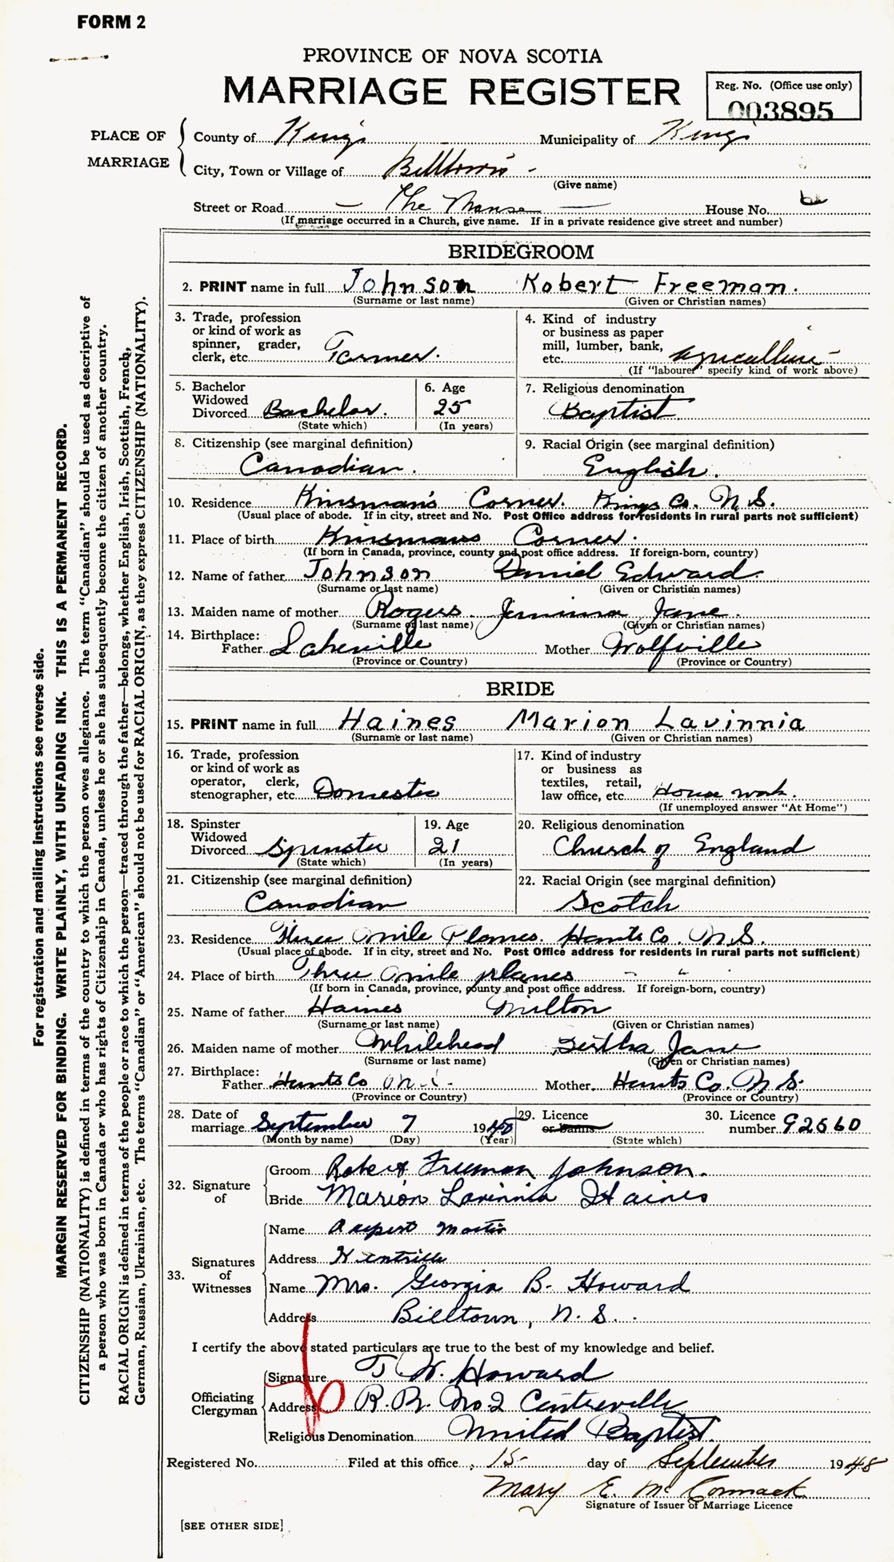 FORM 2
PROVINCE OF NOVA SCOTIA
MARRIAGE REGISTER
Reg. No. (Office use only)
003895
PLACE OF MARRIAGE
County of Kings Municipality of Kings
City, Town or Village of Billtown -
(Give name)
Street or Road — The Manse — House No.
(If marriage occurred in a Church, give name. If in a private residence give street and number)
BRIDEGROOM
2. PRINT name in full Johnson Robert Freeman.
(Surname or last name) (Given or Christian names)
3. Trade, profession or kind of work as spinner, grader, clerk, etc. Farmer.
4. Kind of industry or business as paper mill, lumber, bank, etc. Agriculture
(If "labourer" specify kind of work above)
5. Bachelor Widowed Divorced Bachelor.
(State which)
6. Age 25
(In years)
7. Religious denomination
Baptist
8. Citizenship (see marginal definition)
Canadian.
9. Racial Origin (see marginal definition)
English.
10. Residence Kinsman's Corner. Kings Co. N.S.
(Usual place of abode. If in city, street and No. Post Office address for residents in rural parts not sufficient)
11. Place of birth Kinsmans Corner.
(If born in Canada, province, county and post office address. If foreign-born, country)
12. Name of father Johnson Daniel Edward.
(Surname or last name) (Given or Christian names)
13. Maiden name of mother Rogers Jemima Jane.
(Surname of last name) (Given or Christian names)
14. Birthplace:
Father Lakeville Mother Wolfville
(Province or Country) (Province or Country)
BRIDE
15. PRINT name in full Haines Marion Lavinnia
(Surname or last name) (Given or Christian names)
16. Trade, profession or kind of work as operator, clerk, stenographer, etc. Domestic
17. Kind of industry or business as textiles, retail, law office, etc. House work.
(If unemployed answer "At Home")
18. Spinster Widowed Divorced Spinster
(State which)
19. Age 21
(In years)
20. Religious denomination
Church of England
21. Citizenship (see marginal definition)
Canadian
22. Racial Origin (see marginal definition)
Scotch
23. Residence Three Mile Planes. Hants Co. N.S.
(Usual place of abode. If in city, street and No. Post Office address for residents in rural parts not sufficient)
24. Place of birth Three Mile planes - " -
(If born in Canada, province, county and post office address. If foreign-born, country)
25. Name of father Haines Milton
(Surname or last name) (Given or Christian names)
26. Maiden name of mother Whitehead Bertha Jane
(Surname or last name) (Given or Christian names)
27. Birthplace:
Father Hants Co N.S. Mother Hants Co. N.S.
(Province or Country) (Province or Country)
28. Date of marriage September 7 1948
(Month by name) (Day) (Year)
29. Licence or Banns
(State which)
30. Licence number 92660
32. Signature of
Groom Robert Freeman Johnson.
Bride Marion Lavinnia Haines
33. Signatures of Witnesses
Name Martin
Address Kentville
Name Mrs. Georgia B. Howard
Address Billtown, N.S.
I certify the above stated particulars are true to the best of my knowledge and belief.
Officiating Clergyman
Signature T. W. Howard
Address R.R. No 2 Centreville
Religious Denomination United Baptist.
Registered No. Filed at this office, 15 day of September 1948
Mary E. McCormack
Signature of Issuer of Marriage Licence
[SEE OTHER SIDE]
For registration and mailing instructions see reverse side.
MARGIN RESERVED FOR BINDING. WRITE PLAINLY, WITH UNFADING INK. THIS IS A PERMANENT RECORD.
CITIZENSHIP (NATIONALITY) is defined in terms of the country to which the person owes allegiance. The term "Canadian" should be used as descriptive of
a person who was born in Canada or who has rights of Citizenship in Canada, unless he or she has subsequently become the citizen of another country.
RACIAL ORIGIN is defined in terms of the people or race to which the person—traced through the father—belongs, whether English, Irish, Scottish, French,
German, Russian, Ukrainian, etc. The terms "Canadian" or "American" should not be used for RACIAL ORIGIN, as they express CITIZENSHIP (NATIONALITY).